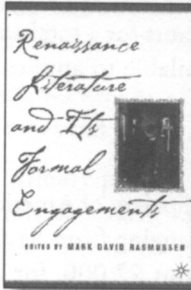 Renaissance
Literature
and Its
Formal
Engagements
EDITED BY MARK DAVID RASMUSSEN